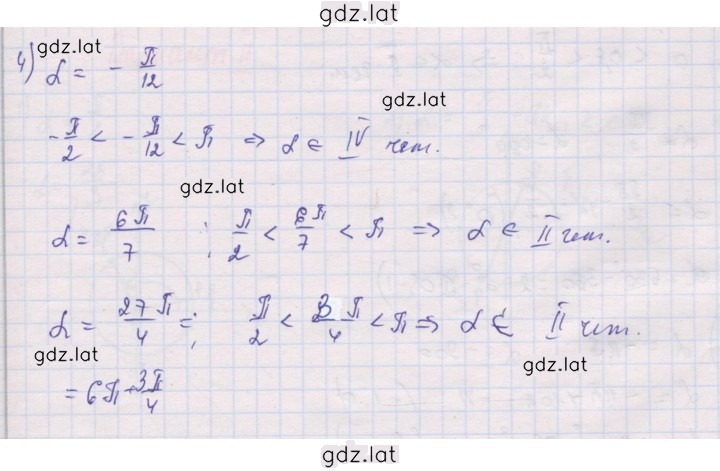 gdz.lat
gdz.lat
4) α = - π/12
gdz.lat
-π/2 < -π/12 < π ⇒ α ∈ IV чет.
gdz.lat
α = 6π/7 ; π/2 < 6π/7 < π ⇒ α ∈ II чет.
α = 27π/4 = ; π/2 < 3π/4 < π ⇒ α ∈ II чет.
gdz.lat
gdz.lat
= 6π + 3π/4
gdz.lat